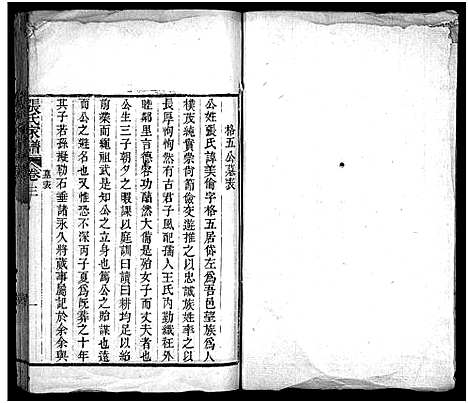 格五公墓表
公姓張氏諱美倫字格五居岱左為吾邑望族為人
樸茂純實崇尚節儉交遊推之以其族姓李之以
長厚恂恂然有古君子風配孺人王氏内勤織紝外
睦鄰里言德容功藹然大備是殆女子而丈夫者也
公生三子朝夕之暇課以庭訓曰讀曰耕均能
前業而繩祖武是知公之立身也篤公之貽謀也遠
而公之避名也又惟恐不深丙子夏為既葬之十年
其子若孫擬勒石垂諸永久將蕆事屬記於余余與
張氏家譜
卷三
墓表
一